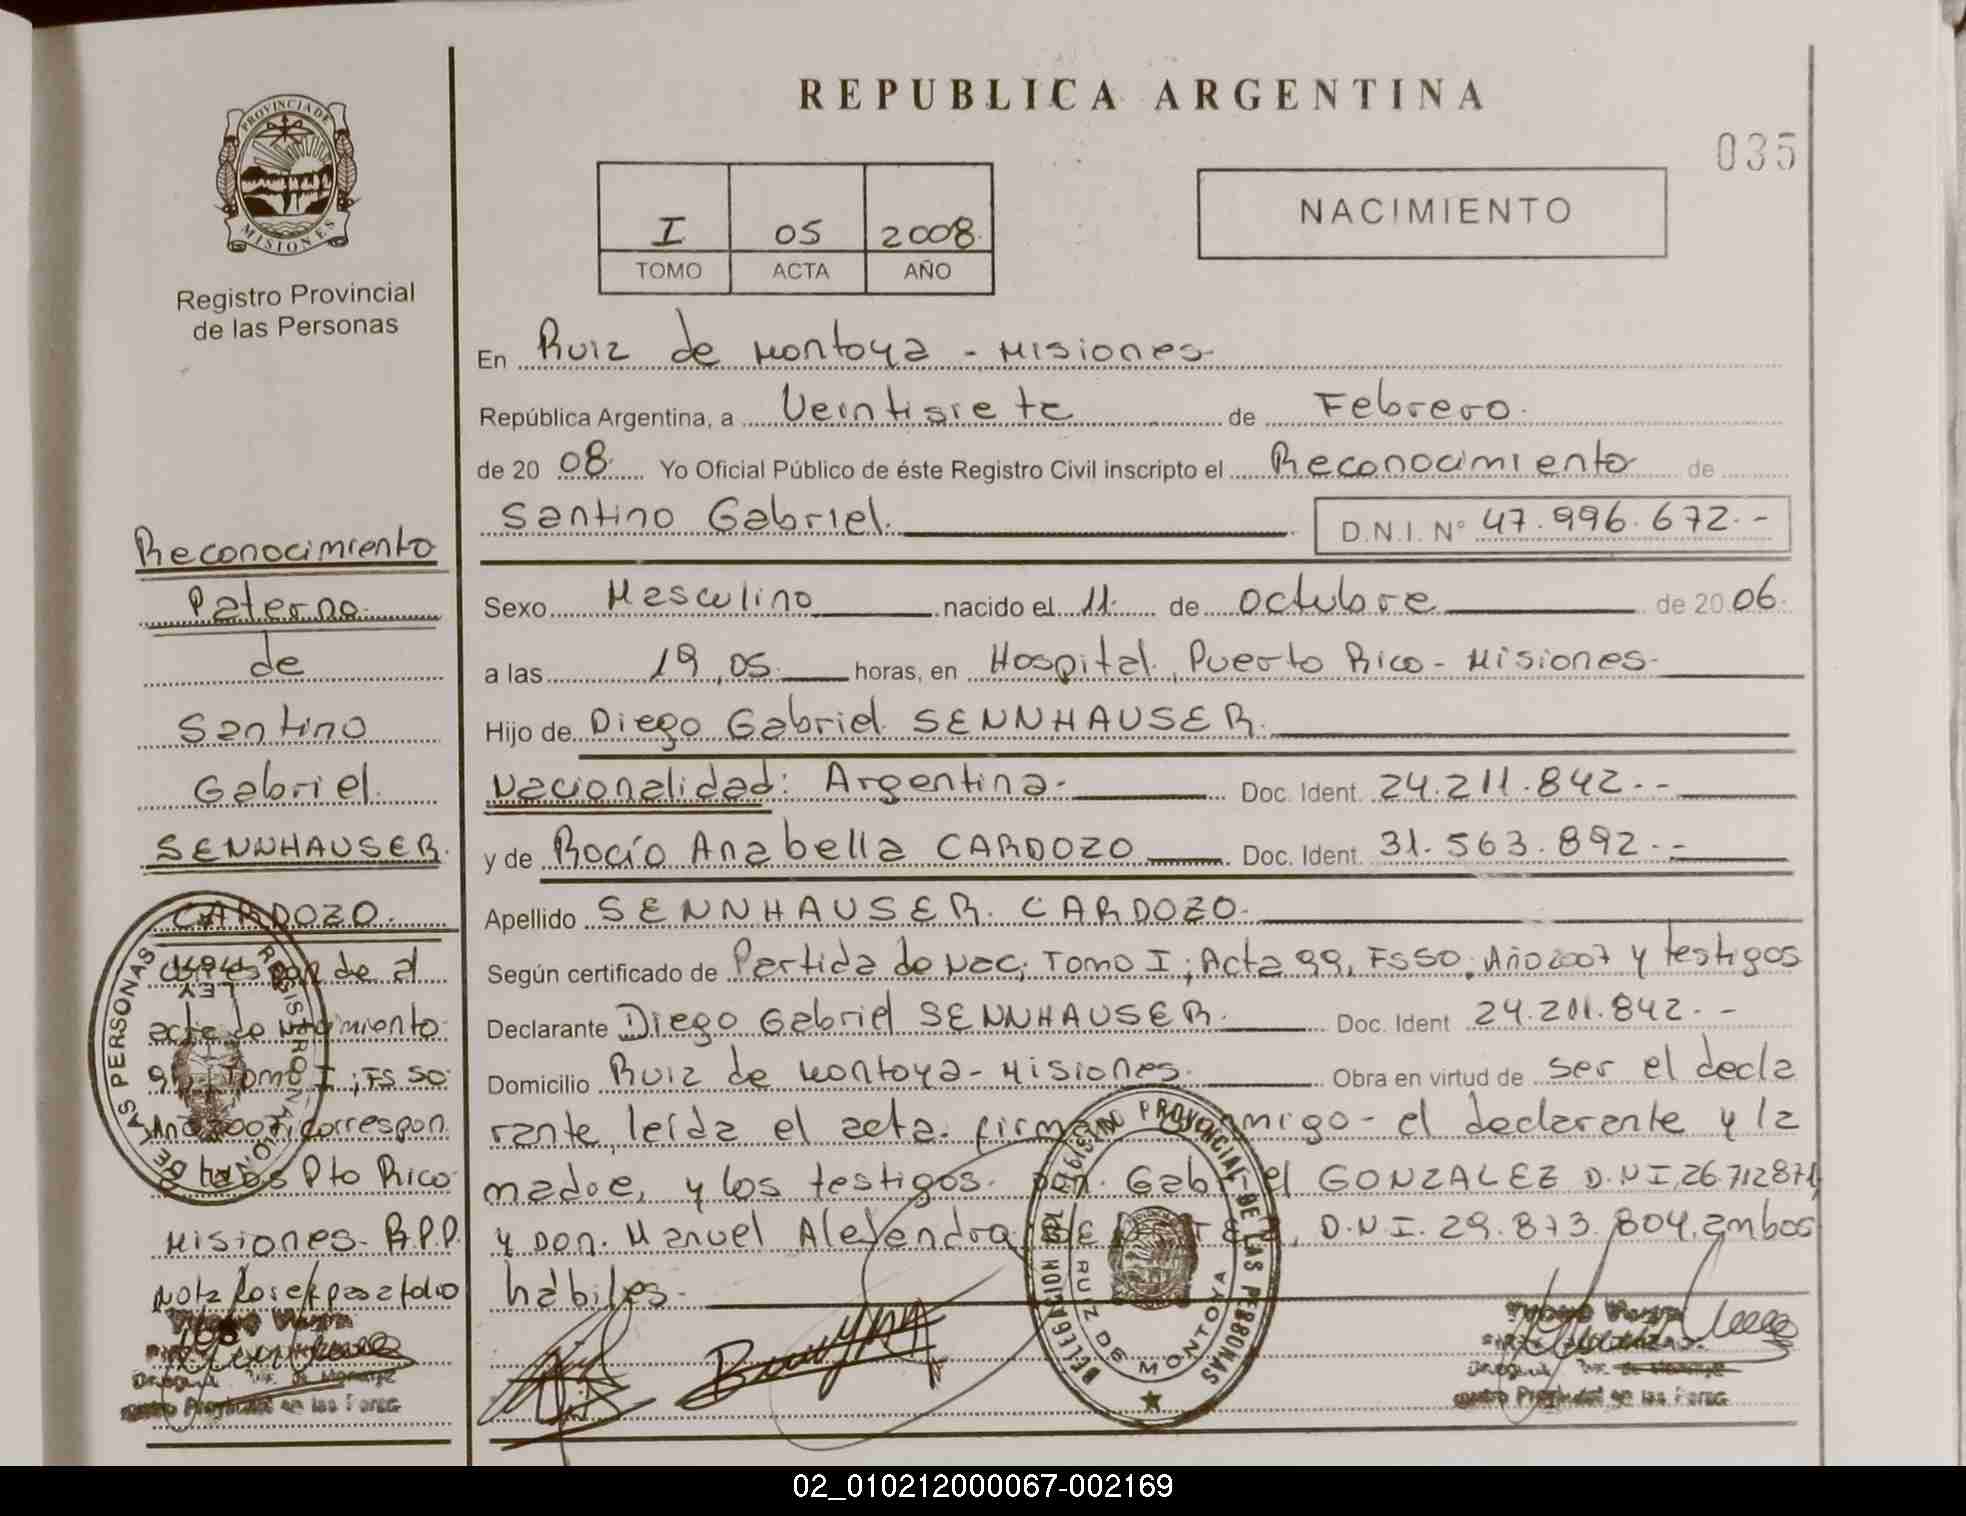 REPUBLICA ARGENTINA
035
PROVINCIA DE MISIONES
Registro Provincial
de las Personas
I 05 2008.
TOMO ACTA AÑO
NACIMIENTO
En Ruiz de Montoya - Misiones.
República Argentina, a Veintisiete de Febrero.
de 20 08. Yo Oficial Público de éste Registro Civil inscripto el Reconocimiento de
Santino Gabriel. D.N.I. Nº 47.996.672.-
Sexo Masculino nacido el 11. de octubre de 20 06.
a las 19,05. horas, en Hospital, Puerto Rico - Misiones.
Hijo de Diego Gabriel SENNHAUSER.
Nacionalidad: Argentina. Doc. Ident. 24.211.842.-
y de Rocío Anabella CARDOZO Doc. Ident. 31.563.892.-
Apellido SENNHAUSER. CARDOZO.
Según certificado de Partida de Nac; Tomo I; Acta 99, Fs50; Año 2007 y testigos
Declarante Diego Gabriel SENNHAUSER. Doc. Ident 24.211.842.-
Domicilio Ruiz de Montoya - Misiones. Obra en virtud de ser el decla
rante, leída el acta. firma conmigo - el declarante y la
madre, y los testigos. Don. Gabriel GONZALEZ D.N.I, 26.712871,
y Don. Manuel Alejandro D.N.I. 29.873.804, ambos
hábiles.
Reconocimiento
Paterno.
de
Santino
Gabriel.
SENNHAUSER.
CARDOZO.
corresponde al
acta de Nacimiento
99, Tomo I; Fs 50.
Año 2007; correspon.
Pto Rico.
Misiones. R.P.P.
DELEGACION REGISTRO PROVINCIAL DE LAS PERSONAS
RUIZ DE MONTOYA
REGISTRO NACIONAL DE LAS PERSONAS
LEY
02_010212000067-002169